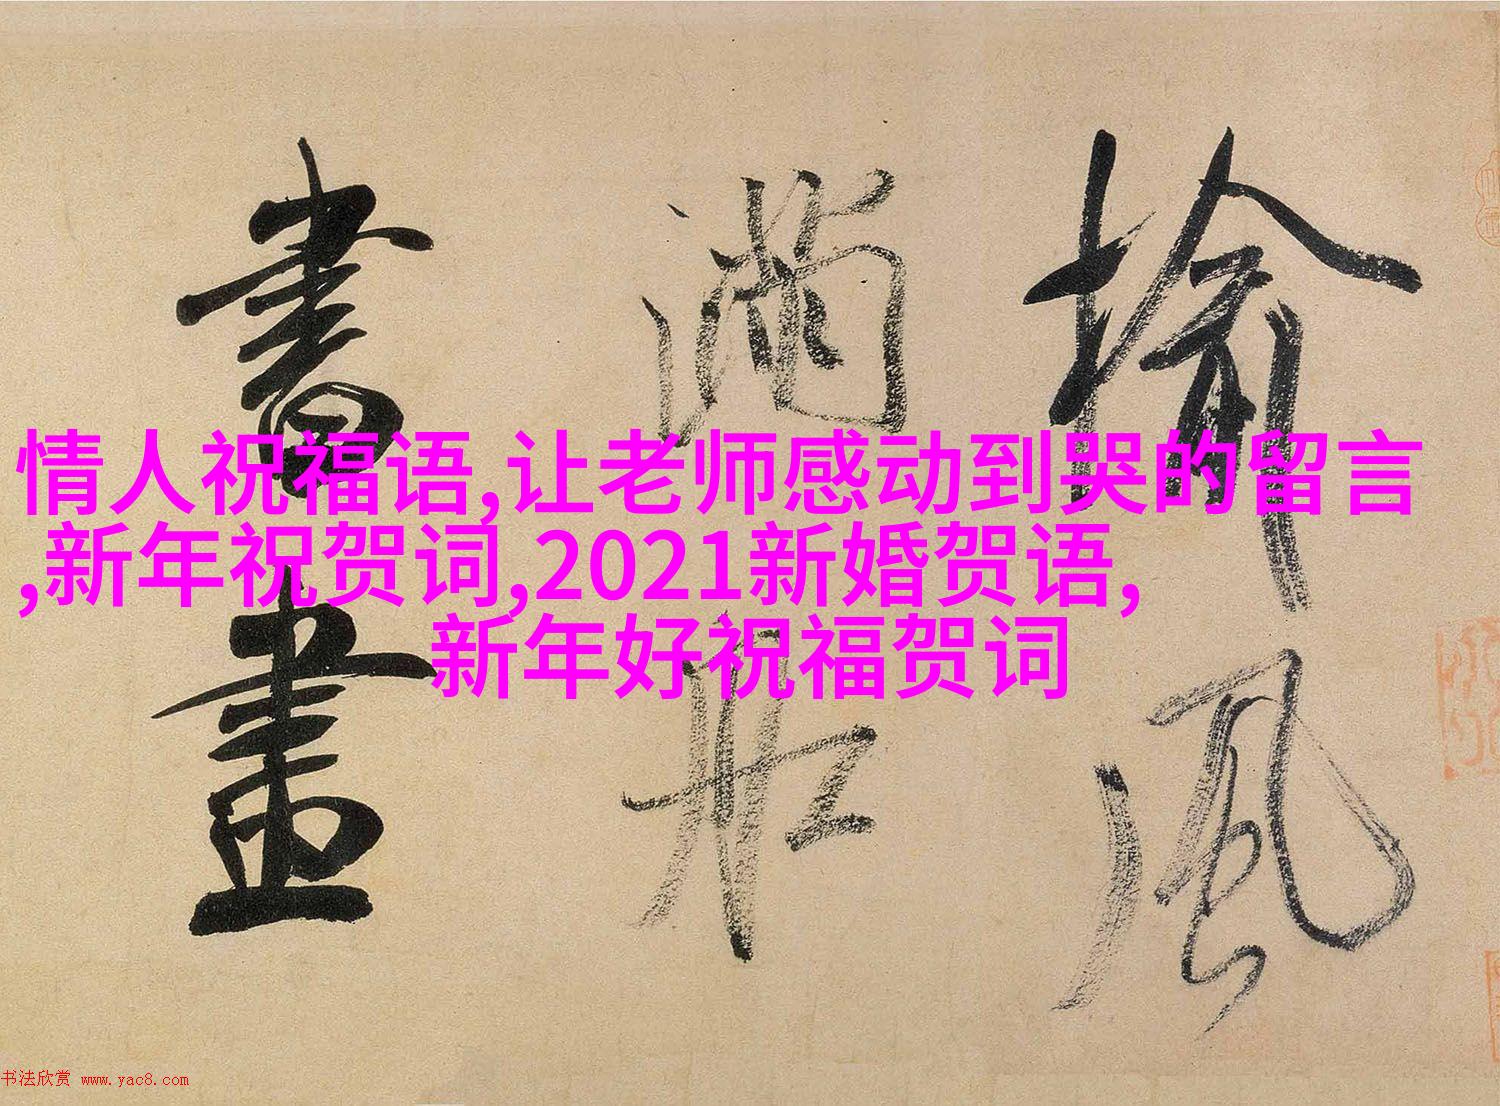 榆風
滿舡
書畫
情人祝福语,让老师感动到哭的留言
,新年祝贺词,2021新婚贺语,
新年好祝福贺词
书法欣赏 www.yac8.com